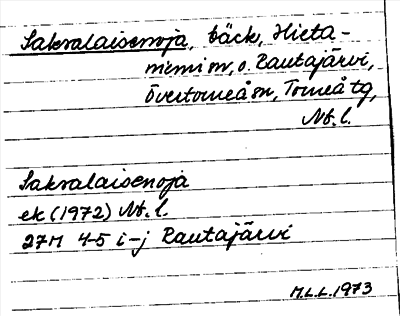 Sakralaisenoja, bäck, Hieta-
niemi sn, o. Rautajärvi,
Övertorneå sn, Torneå tg,
Nb. l.
Sakralaisenoja
ek (1972) Nb. l.
27M 4-5 i-j Rautajärvi
M.L.L. 1973